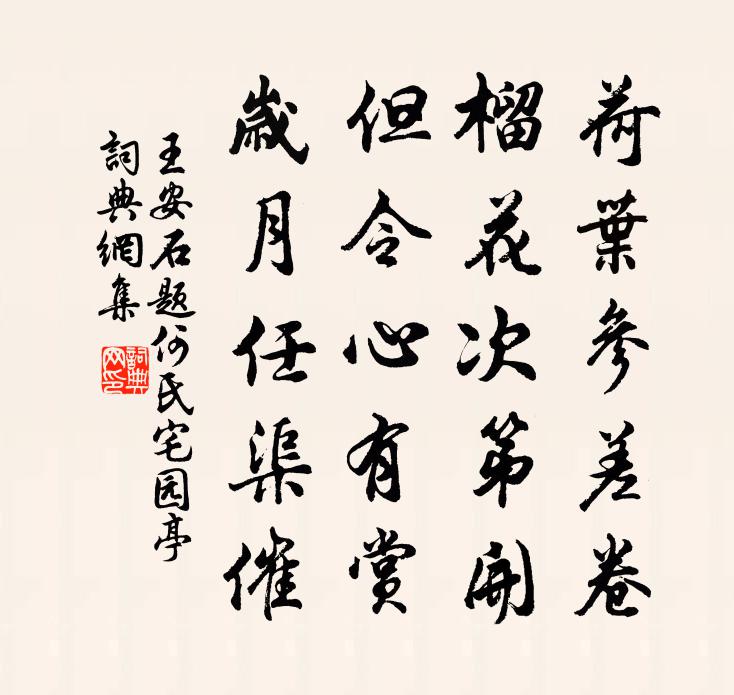 荷葉參差卷
榴花次第開
但令心有賞
歲月任渠催
王安石题何氏宅园亭
詞典網集
詞典網印